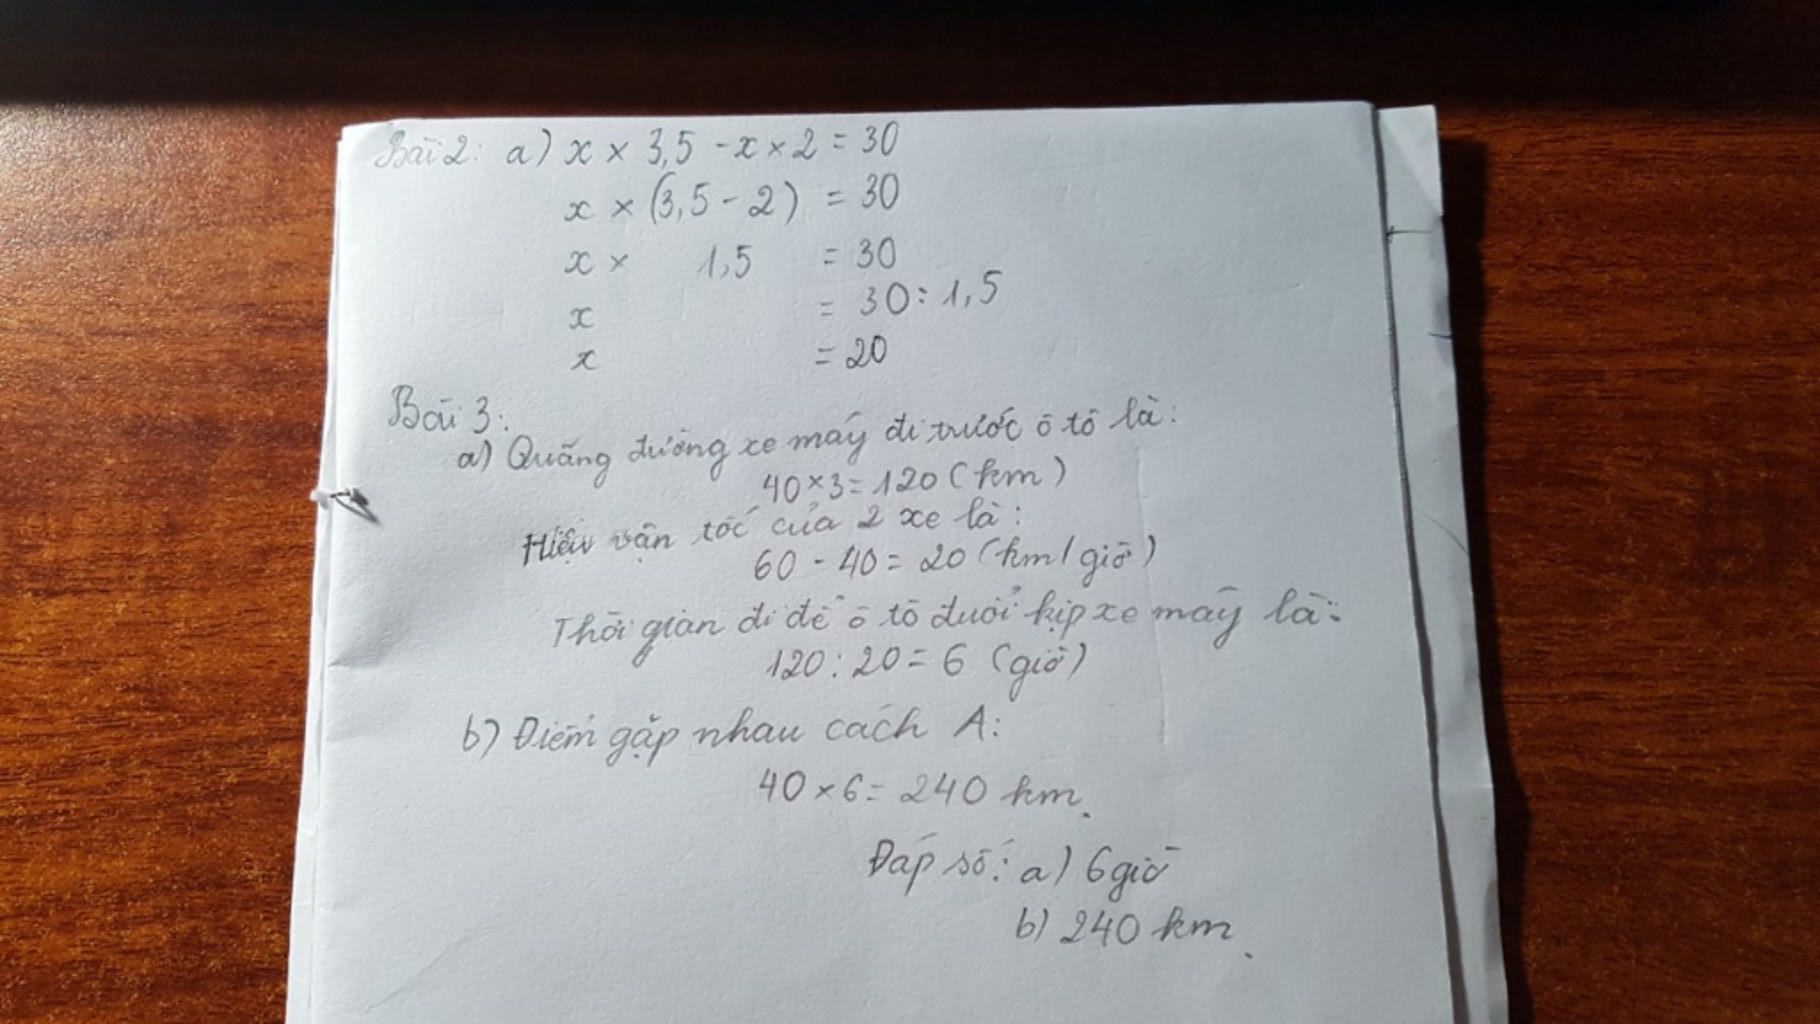 Bài 2: a) x × 3,5 - x × 2 = 30
x × (3,5 - 2) = 30
x × 1,5 = 30
x = 30 : 1,5
x = 20
Bài 3:
a) Quãng đường xe máy đi trước ô tô là:
40 × 3 = 120 (km)
Hiệu vận tốc của 2 xe là:
60 - 40 = 20 (km/giờ)
Thời gian đi để ô tô đuổi kịp xe máy là:
120 : 20 = 6 (giờ)
b) Điểm gặp nhau cách A:
40 × 6 = 240 km.
Đáp số: a) 6 giờ
b) 240 km.